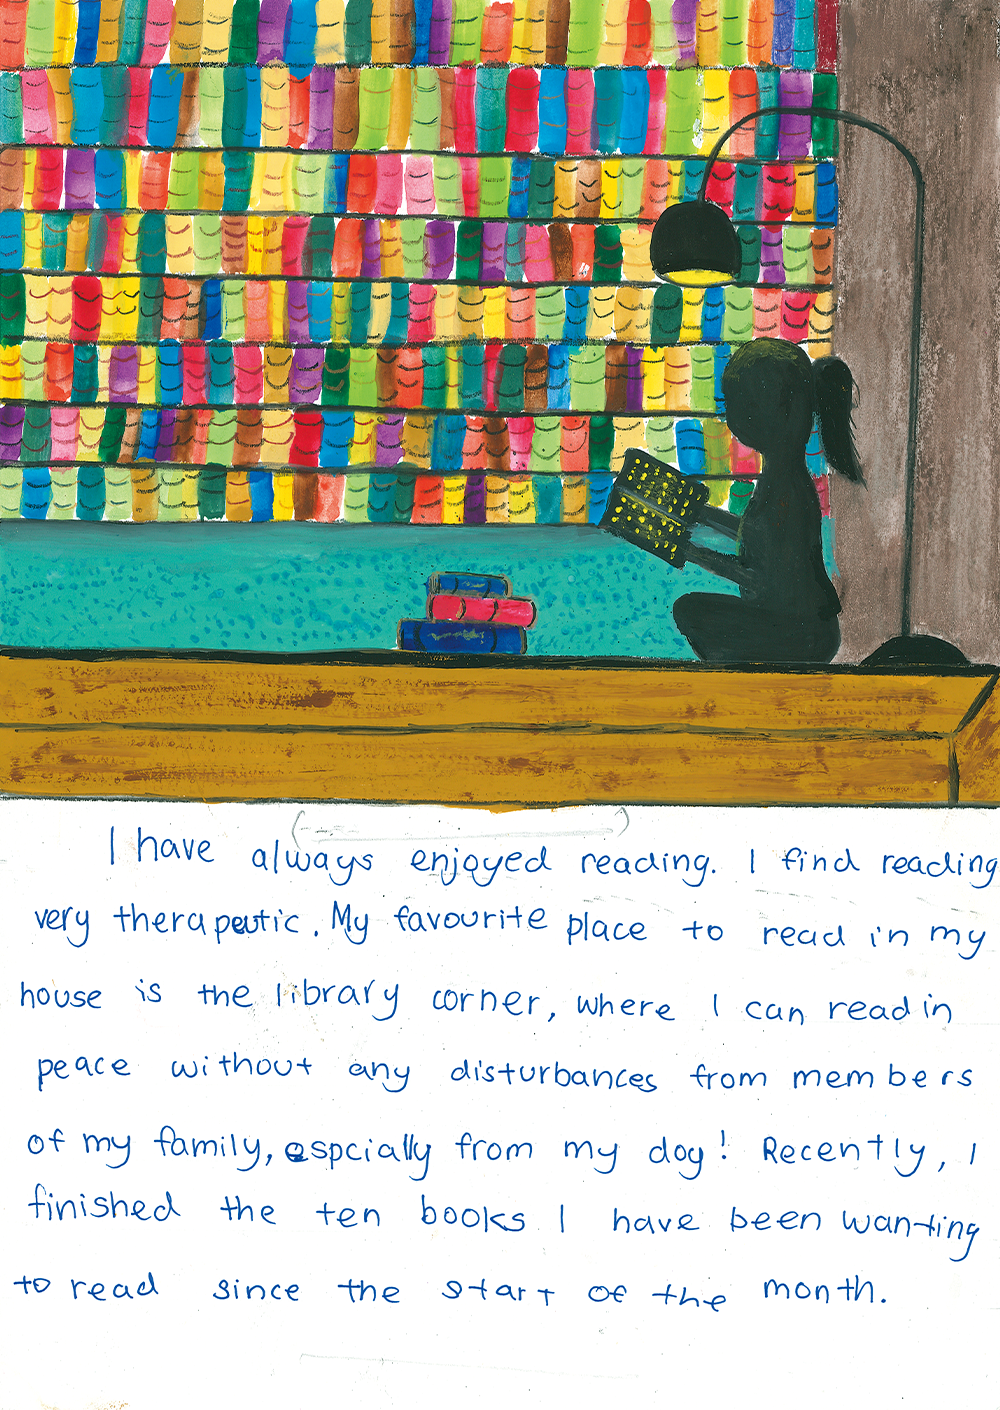 I have always enjoyed reading. I find reading
very therapeutic. My favourite place to read in my
house is the library corner, where I can read in
peace without any disturbances from members
of my family, espcially from my dog! Recently, I
finished the ten books I have been wanting
to read since the start of the month.